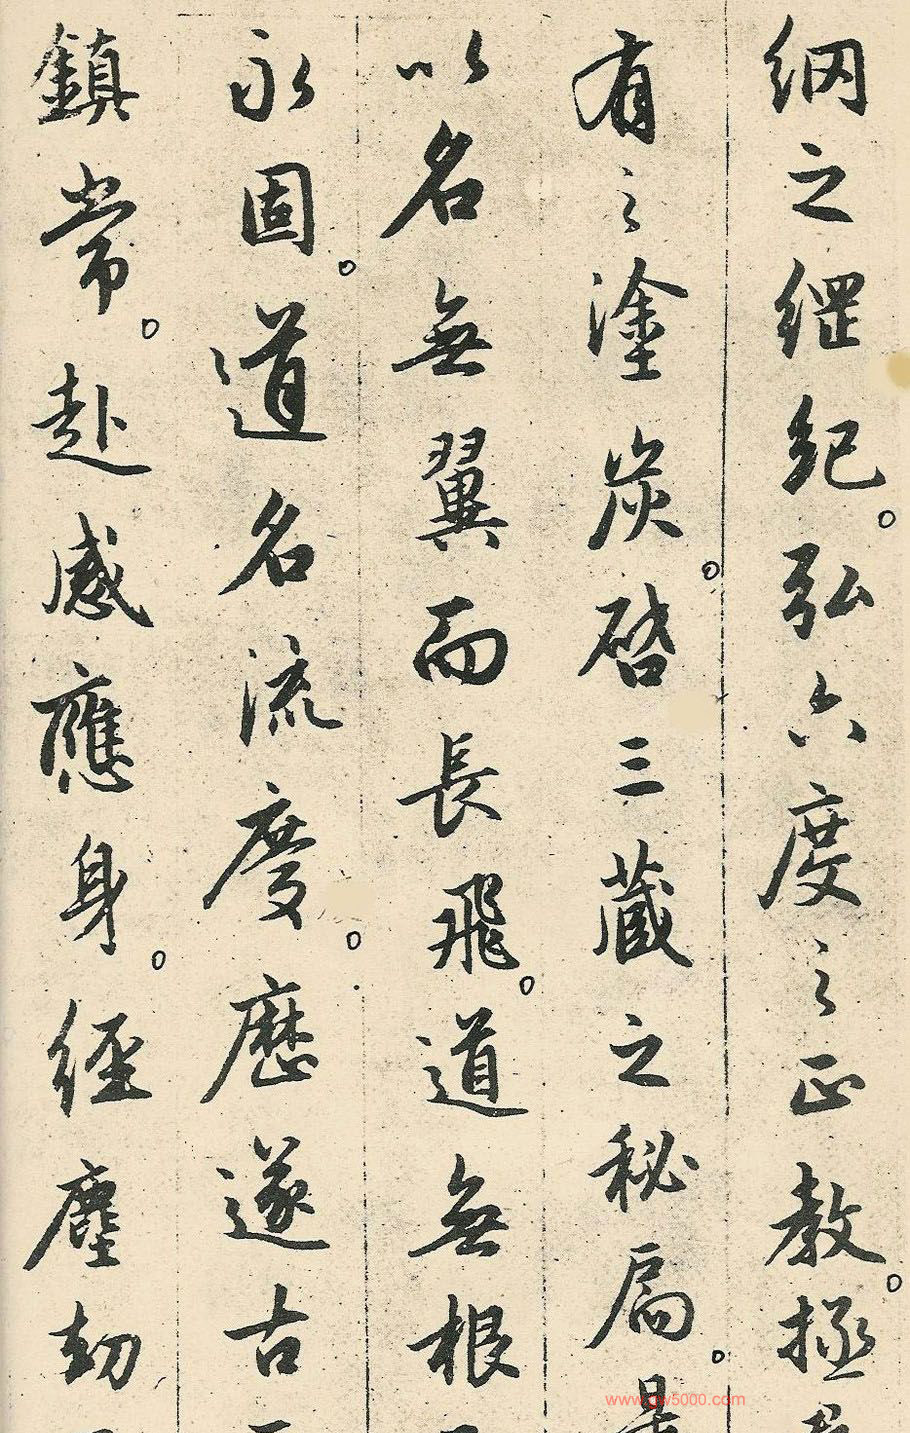 綱之綱紀。弘六度之正教。拯群
有之塗炭。啓三藏之秘扃。是
以名無翼而長飛。道無根而
永固。道名流慶。歷遂古而
鎮常。赴感應身。經塵劫
www.gw5000.com